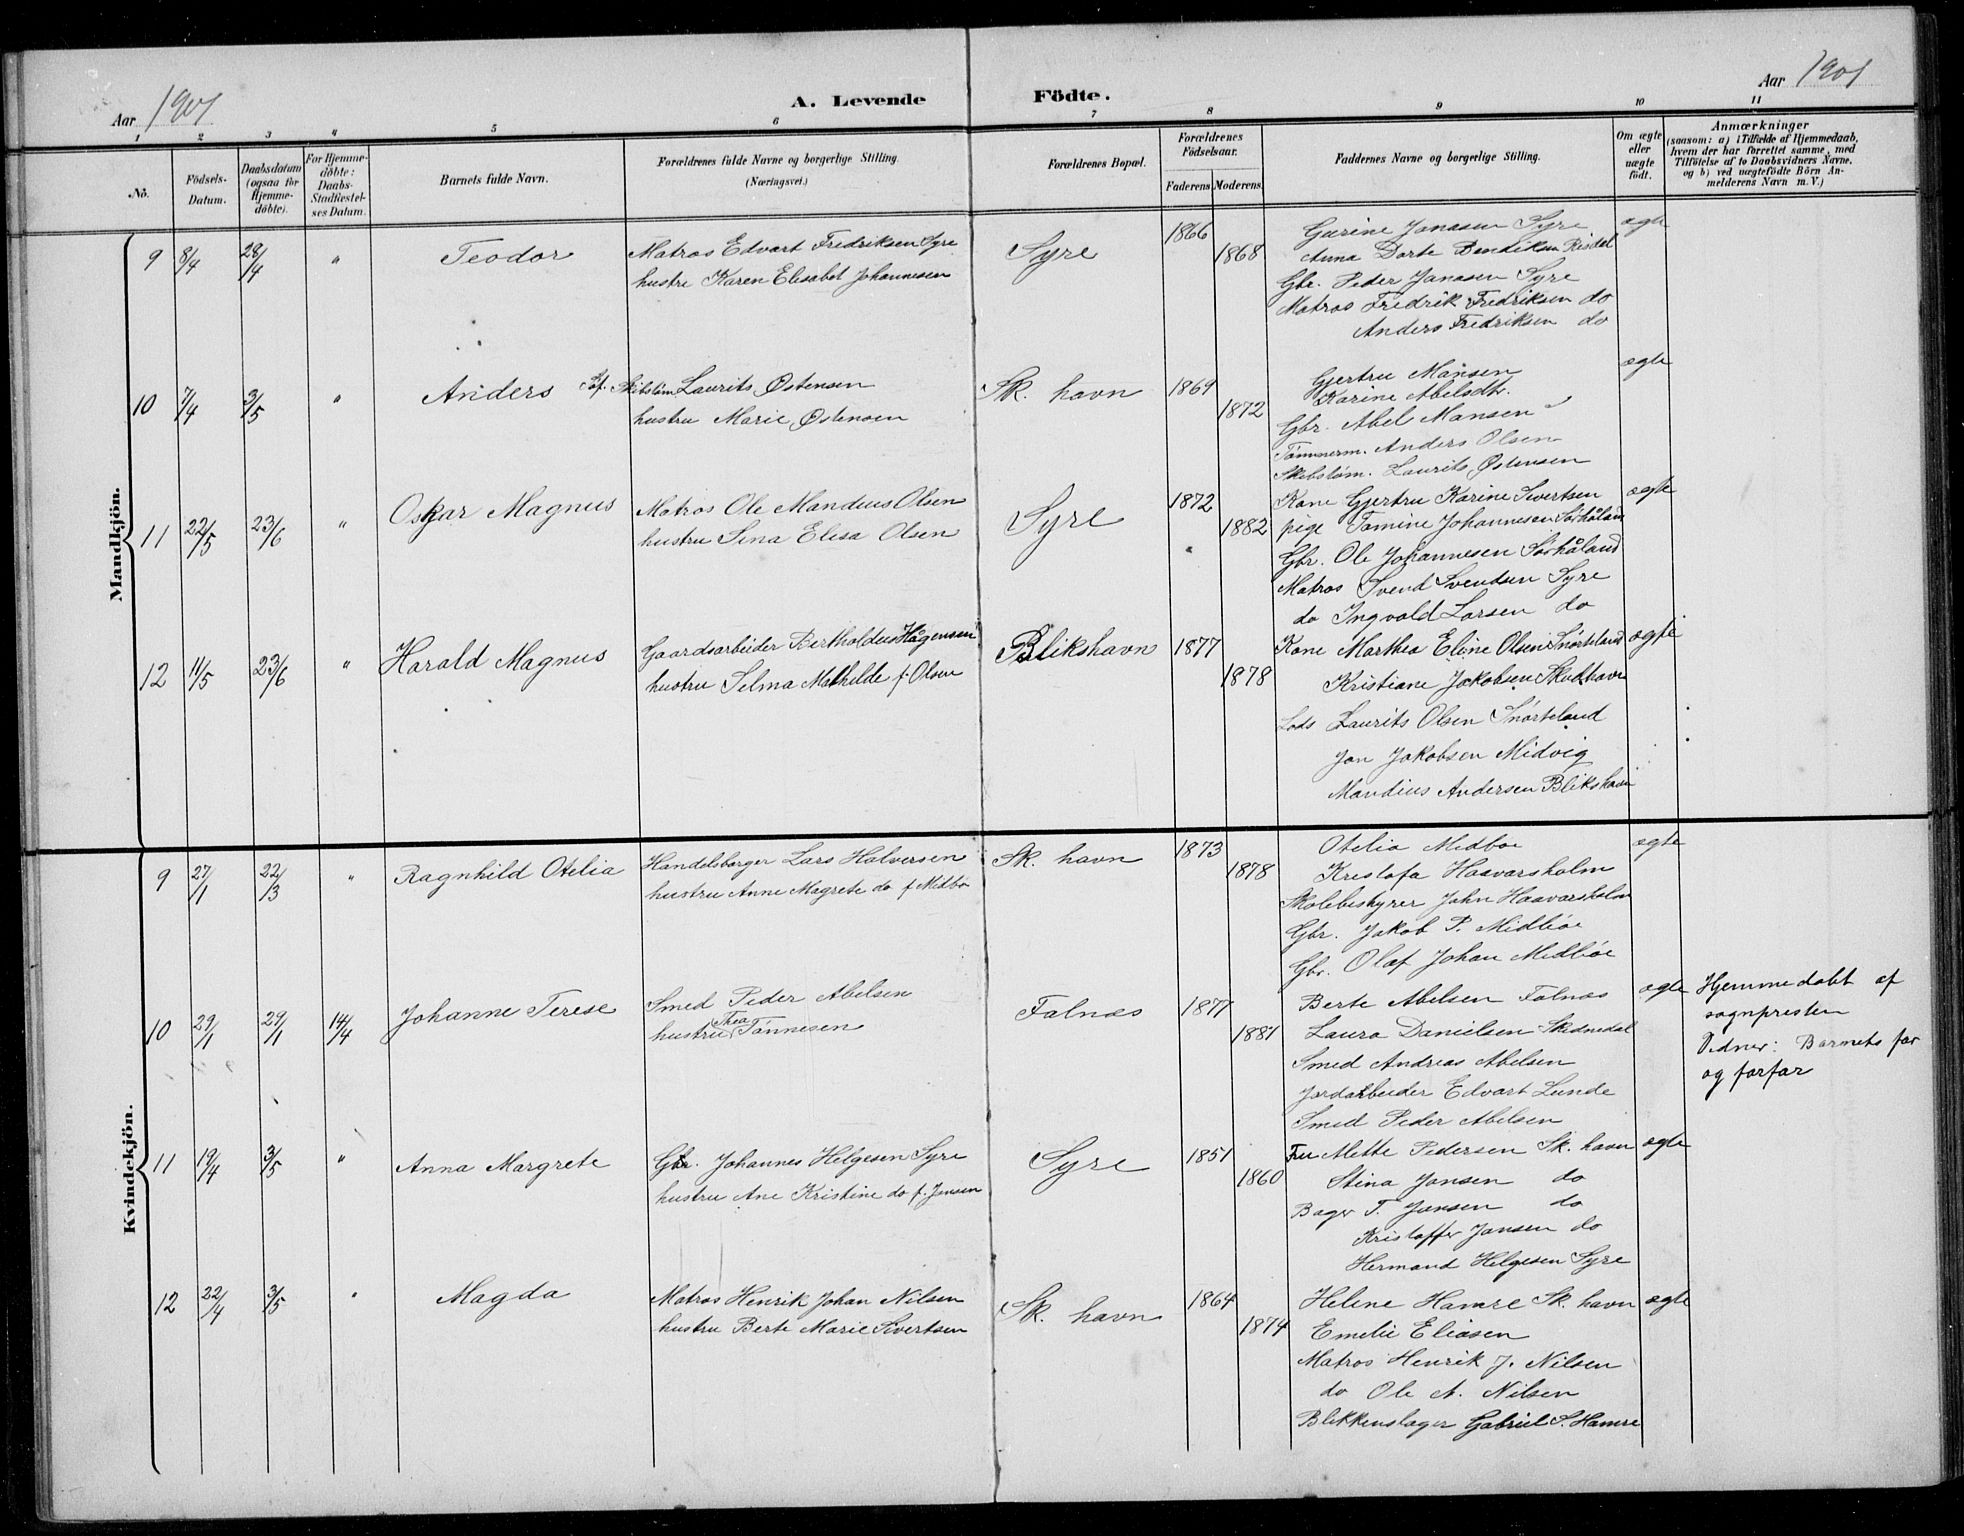 Aar 1901
A. Levende Födte.
Aar 1901
1 2 3 " 5 6 7 8 9 10 11
No.
Födsels-Datum.
Daabsdatum (ogsaa for Hjemme-döbte).
For Hjemme-döbte: Daabs-Stadfæstel-ses Datum.
Barnets fulde Navn.
Forældrenes fulde Navne og borgerlige Stilling.
(Næringsvei.)
Forældrenes Bopæl.
Forældrenes Födselsaar.
Faderens Moderens
Faddernes Navne og borgerlige Stilling.
Om ægte eller uægte födt.
Anmærkninger
(saasom: a) i Tilfælde af Hjemmedaab,
hvem der har forrettet samme, med
Tilföielse af to Daabsvidners Navne,
og b) ved uægtefödte Börn An-
melderens Navn m. V.)
Mandkjön.
9 8/4 28/4 " Teodor
Matros Edvart Fredriksen Syre
hustru Karen Elisabet Johannesen
Syre 1866 1868
Gurine Jonasen Syre
Anna Dorte Bendiksen Risdal
Gbr. Peder Jonasen Syre
Matros Fredrik Fredriksen do
Anders Fredriksen do
ægte
10 7/4 3/5 " Anders
Skibstøm. Laurits Østensen
hustru Marie Østensen
Sk. havn 1869 1872
Gjertru Mansen
Karine Abelsdtr.
Gbr. Abel Mansen
Tømmerm. Anders Olsen
Skibstøm. Laurits Østensen
ægte
11 22/5 23/6 " Oskar Magnus
Matros Ole Mandius Olsen
hustru Sina Elisa Olsen
Syre 1872 1882
Kone Gjertru Karine Sivertsen
pige Tomine Johannesen Sørhåland
Gbr. Ole Johannesen Sørhåland
Matros Svend Svendsen Syre
do Ingvald Larsen do
ægte
12 11/5 23/6 " Harald Magnus
Gaardsarbeider Bertholdus Hågensen
hustru Selma Mathilde f. Olsen
Blikshavn 1877 1878
Kone Marthea Eline Olsen Snørteland
Kristiane Jakobsen Skudhavn
Lods Laurits Olsen Snørteland
Jon Jakobsen Midvig
Mandius Andersen Blikshavn
ægte
Kvindekjön.
9 27/1 22/3 " Ragnhild Otelia
Handelsborger Lars Halversen
hustru Anne Magrete do f. Midbø
Sk. havn 1873 1878
Otelia Midbøe
Kristofa Haavarsholm
Skolebestyrer John Haavarsholm
Gbr. Jakob P. Midbøe
Gbr. Olaf Johan Midbøe
ægte
10 29/1 29/1 14/4 Johanne Terese
Smed Peder Abelsen
hustru Thea Tønnesen
Falnæs 1877 1881
Berte Abelsen Falnæs
Laura Danielsen Skednedal
Smed Andreas Abelsen
Jordarbeider Edvart Lunde
Smed Peder Abelsen
ægte
Hjemmedøbt af
sognpresten
Vidner: Barnets far
og farfar
11 19/4 3/5 " Anna Margrete
Gbr. Johannes Helgesen Syre
hustru Ane Kristine do f. Jensen
Syre 1851 1860
Fru Mette Pedersen Sk. havn
Stina Jansen do
Bager T. Jansen do
Kristoffer Jansen do
Hermand Helgesen Syre
ægte
12 22/4 3/5 " Magda
Matros Henrik Johan Nilsen
hustru Berte Marie Sivertsen
Sk. havn 1864 1874
Heline Hamre Sk. havn
Emelie Eliasen
Matros Henrik J. Nilsen
do Ole A. Nilsen
Blikkenslager Gabriel S. Hamre
ægte